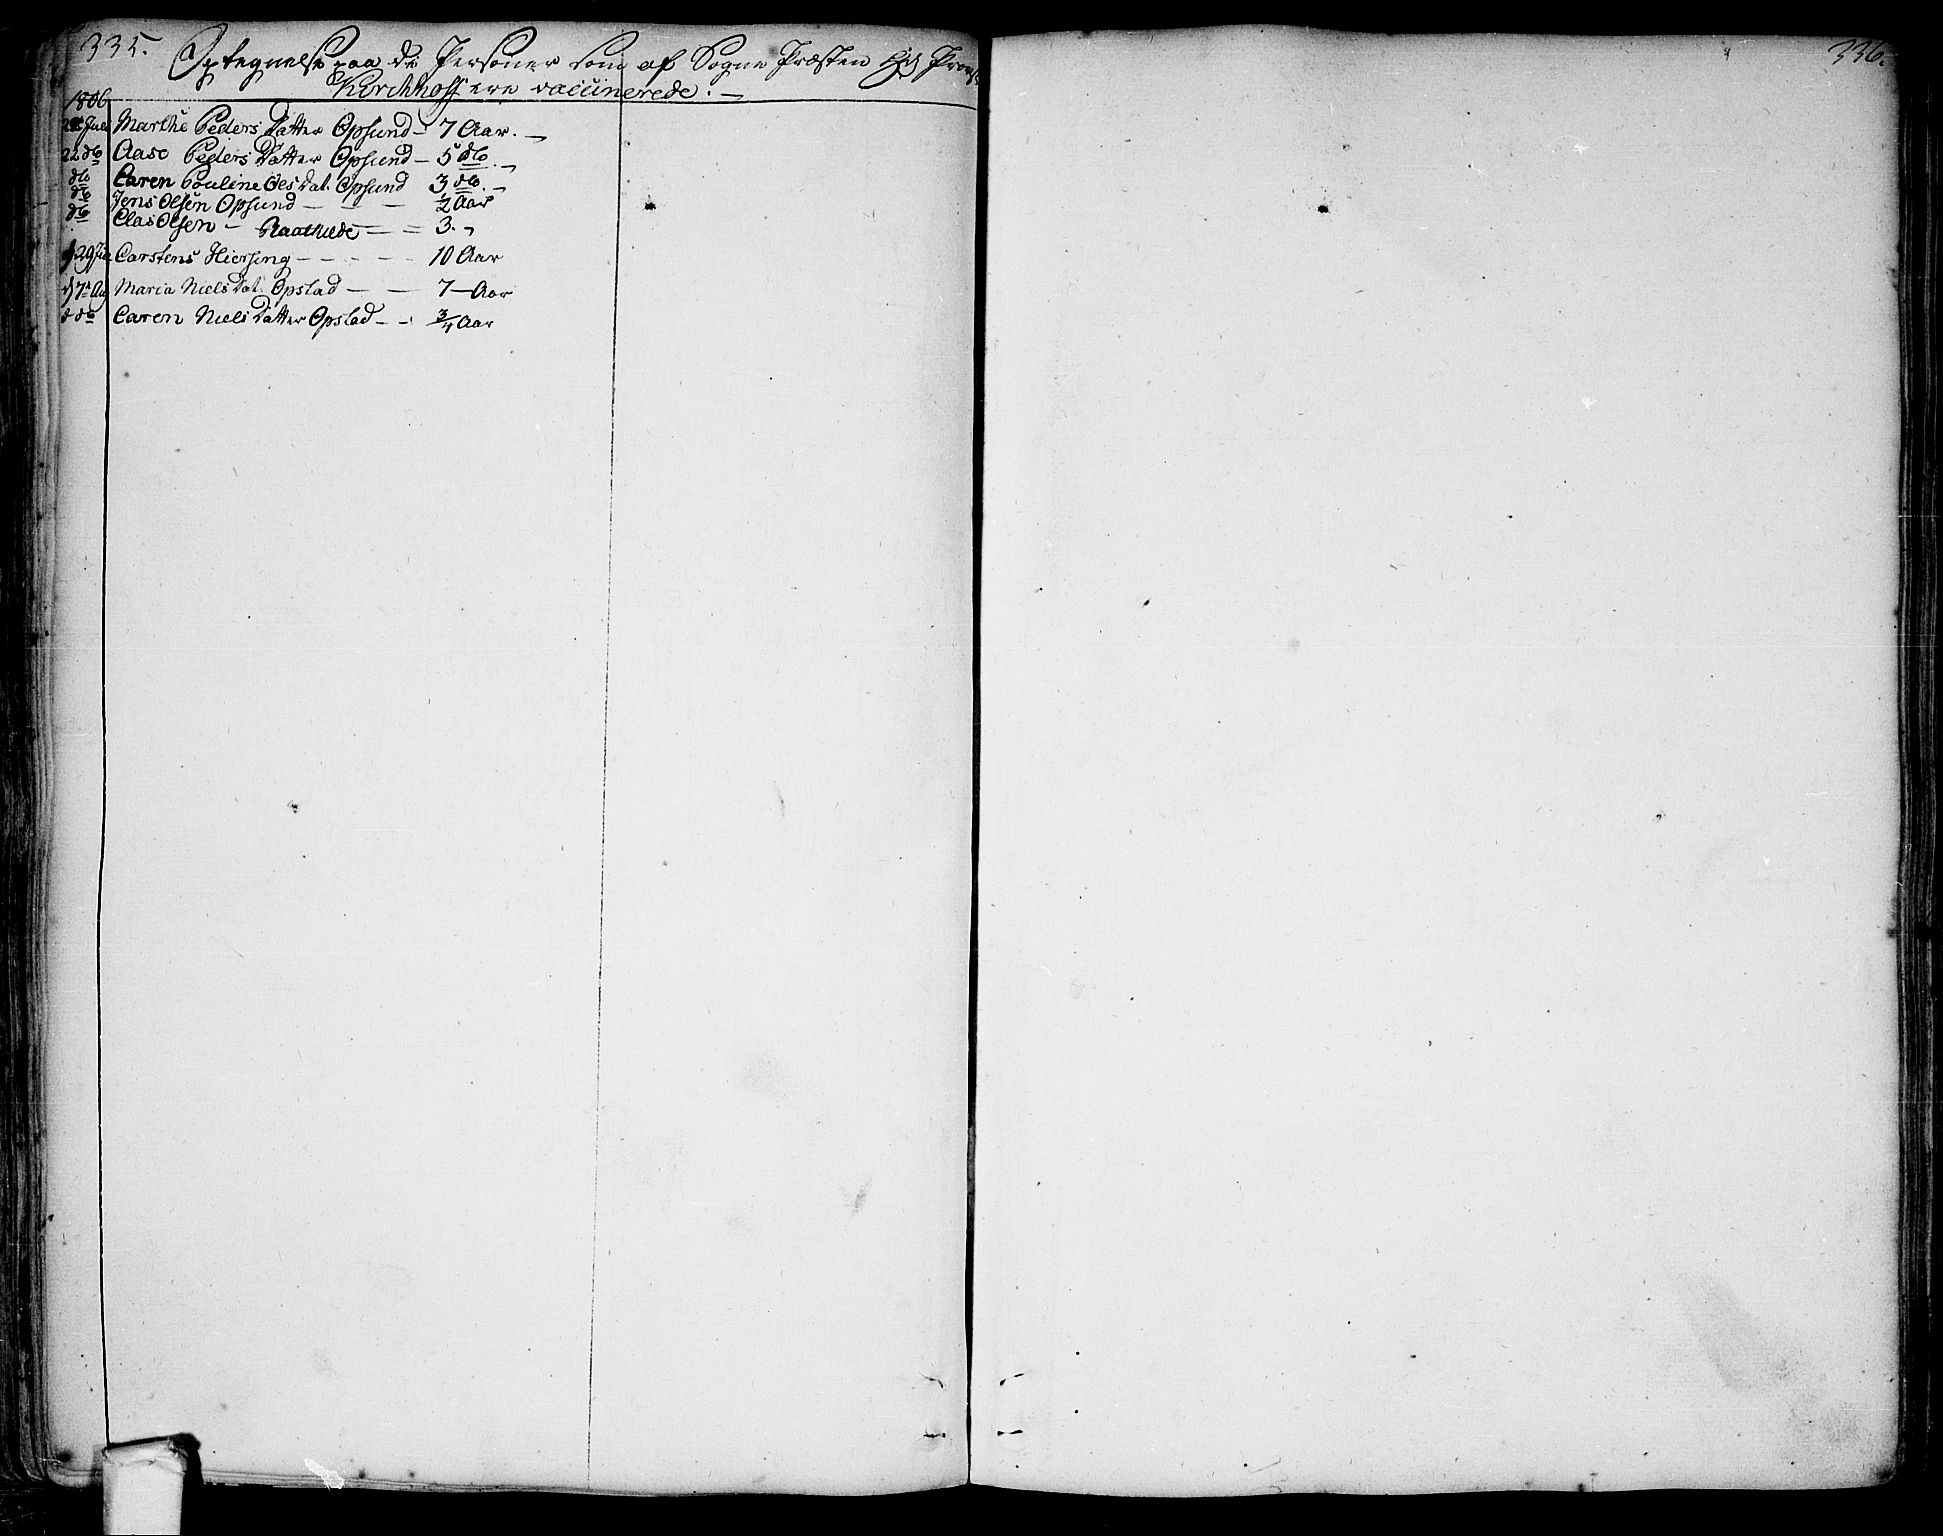 335.
Optegnelse paa de Personer som af Sogne Præsten Hr Provst
Kirchhoff ere vaccinerede. —
1806
22 Juli Marthe Peders Datter Opsund — 7 Aar. —
22 dto Aase Peders Datter Opsund — 5 dto. —
dto Caren Pouline Oles Dat. Opsund 3 dto. —
dto Jens Olsen Opsund — — — ½ Aar
dto Clas Olsen — — — 3. „
d 29 Juli Carstens Hiersing — — — — 10 Aar
d 7 Aug Maria Niels Dat. Opstad — — 7 — Aar
d dto Caren Niels Datter Opstad — — ¾ Aar
336.